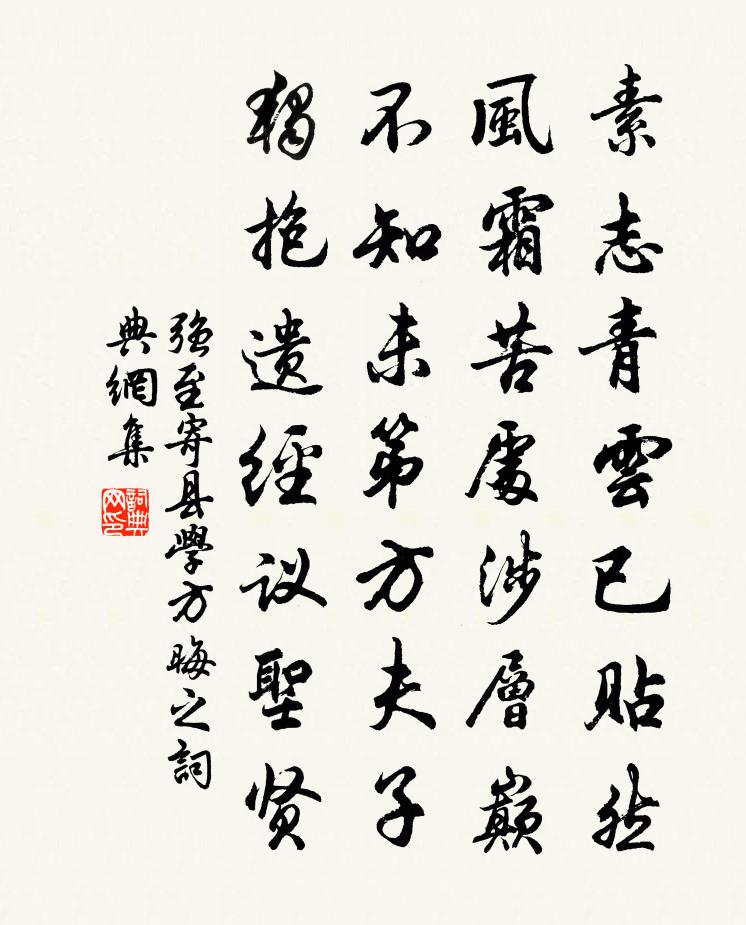 素志青雲已貼然
風霜苦處涉層巔
不知未第方夫子
獨抱遺經议聖贤
强至寄县學方晦之詞
典網集
詞典网印